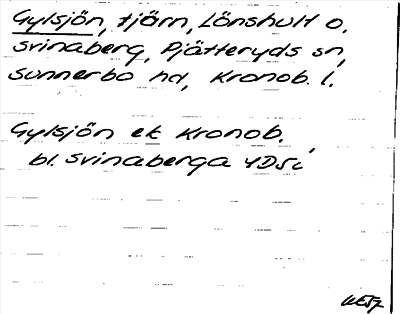 Gylsjön, tjärn, Lönshult o.
Svinaberg, Pjätteryds sn,
Sunnerbo hd, Kronob. l.
Gylsjön ek Kronob.
bl. Svinaberga 4D5i